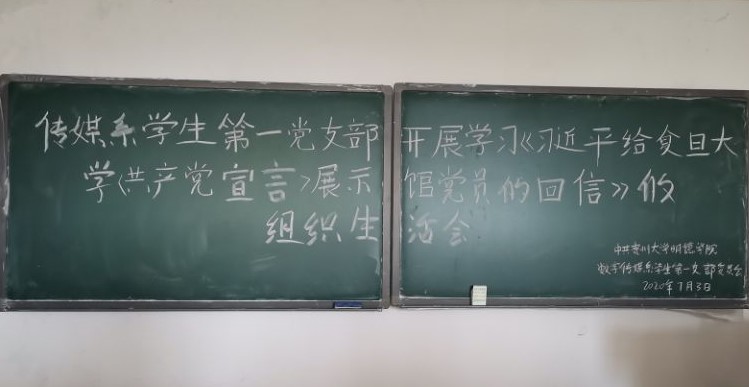 传媒系学生第一党支部开展学习《习近平给复旦大
学《共产党宣言》展示馆党员的回信》的
组织生活会
中共贵州大学明德学院
数字传媒系学生第一支部委员会
2020年7月3日